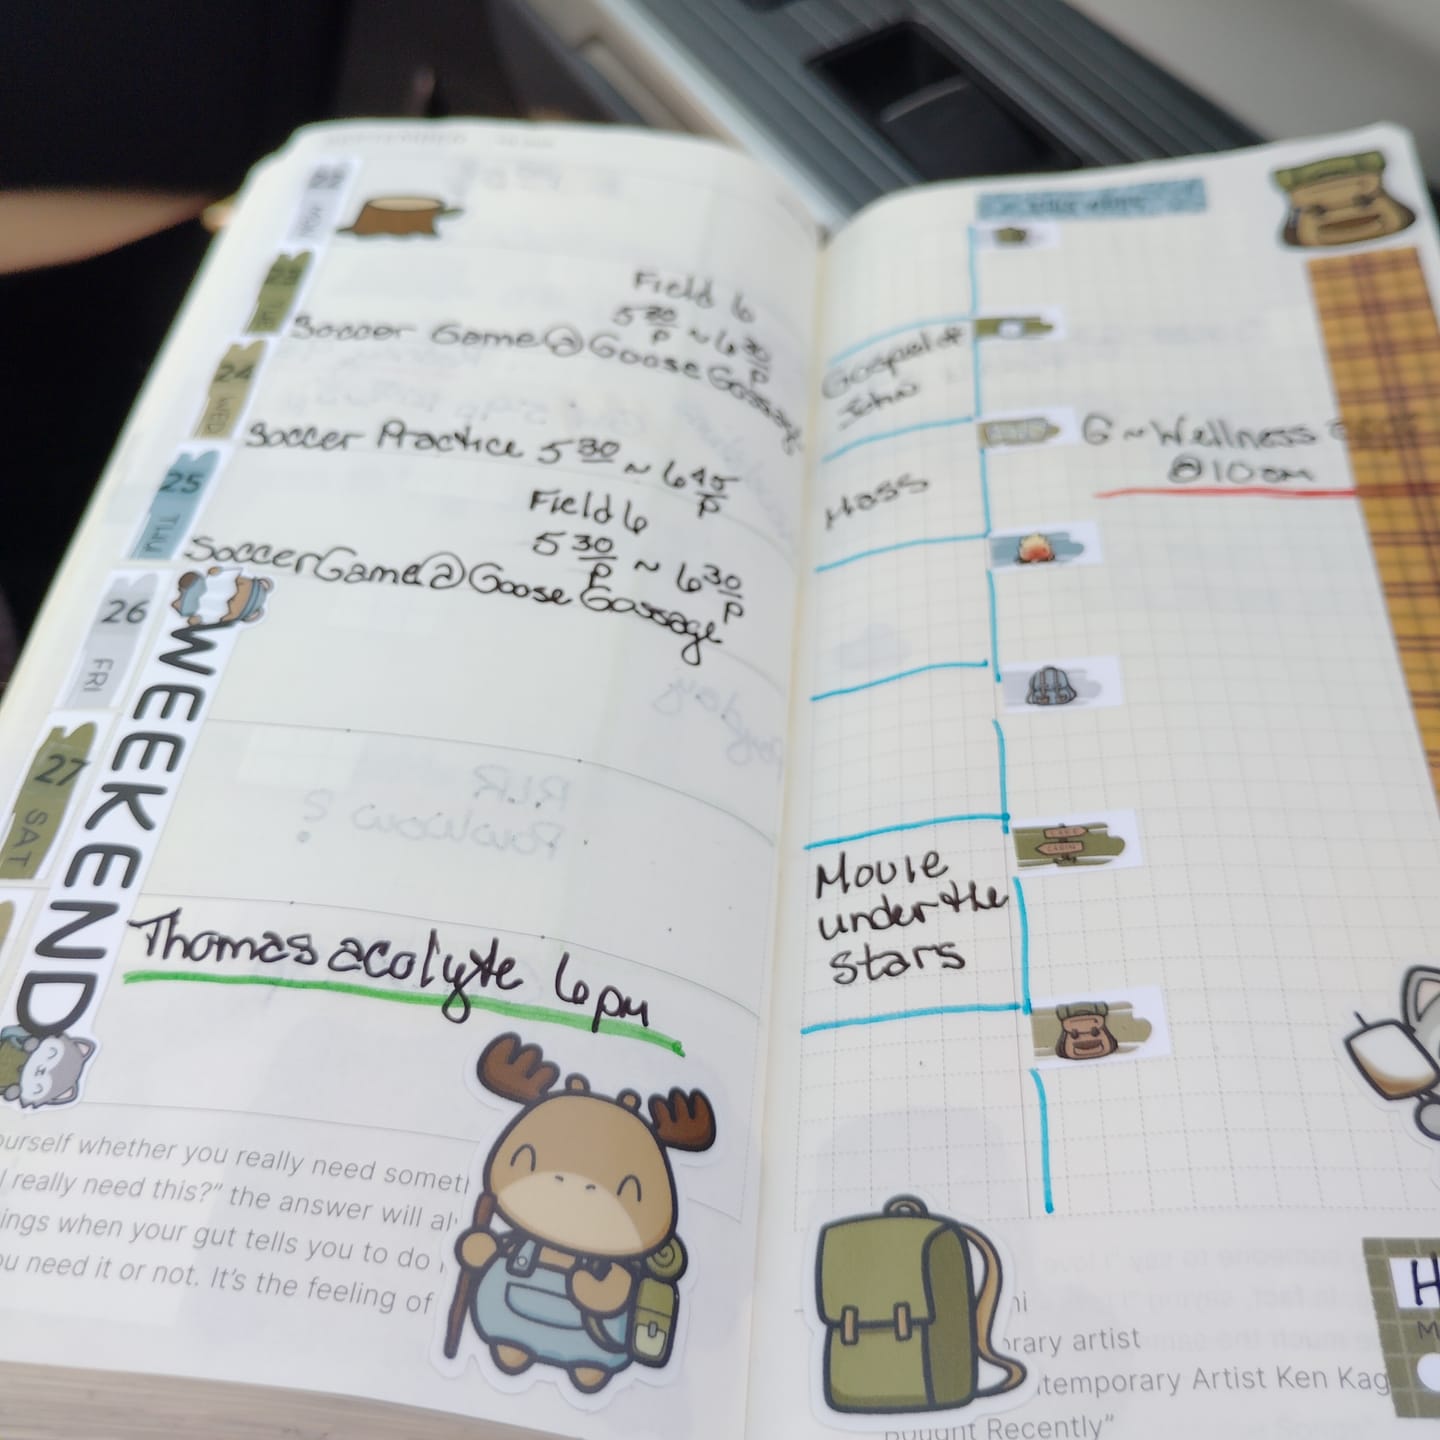 MON
Field 6
5 30 P ~ 6 30 P
Soccer Game @ Goose Gossage
24
WED
Soccer Practice 5 30 ~ 6 45 P
25
THU
Field 6
5 30 P ~ 6 30 P
Soccer Game @ Goose Gossage
26
FRI
WEEKEND
27
SAT
Thomas acolyte 6pm
ourself whether you really need somet
I really need this?" the answer will al
ings when your gut tells you to do
ou need it or not. It's the feeling of
Gospel of
John
G ~ Wellness
@ 10am
Mass
LAKE
CABIN
Movie
under the
stars
ni
orary artist
ntemporary Artist Ken Kag
Bought Recently"
H
M